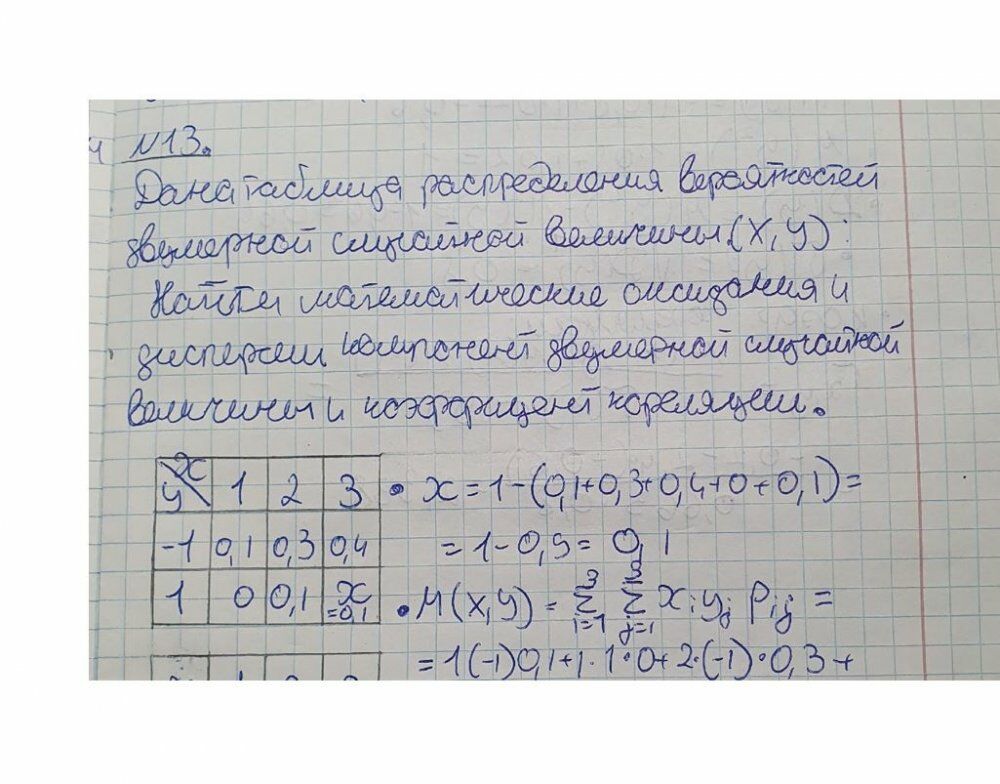 ч
N13.
Дана таблица распределения вероятностей
двумерной случайной величины (X, Y):
Найти математические ожидания и
дисперсии компонент двумерной случайной
величины и коэффициент кореляции.
x
y 1 2 3
-1 0,1 0,3 0,4
1 0 0,1 x =0,1
• x = 1-(0,1+0,3+0,4+0+0,1)=
= 1-0,9= 0,1
• M(X,Y) = 3∑i=1 3∑j=1 xi yj Pij =
= 1(-1)0,1+1·1·0+2·(-1)·0,3+